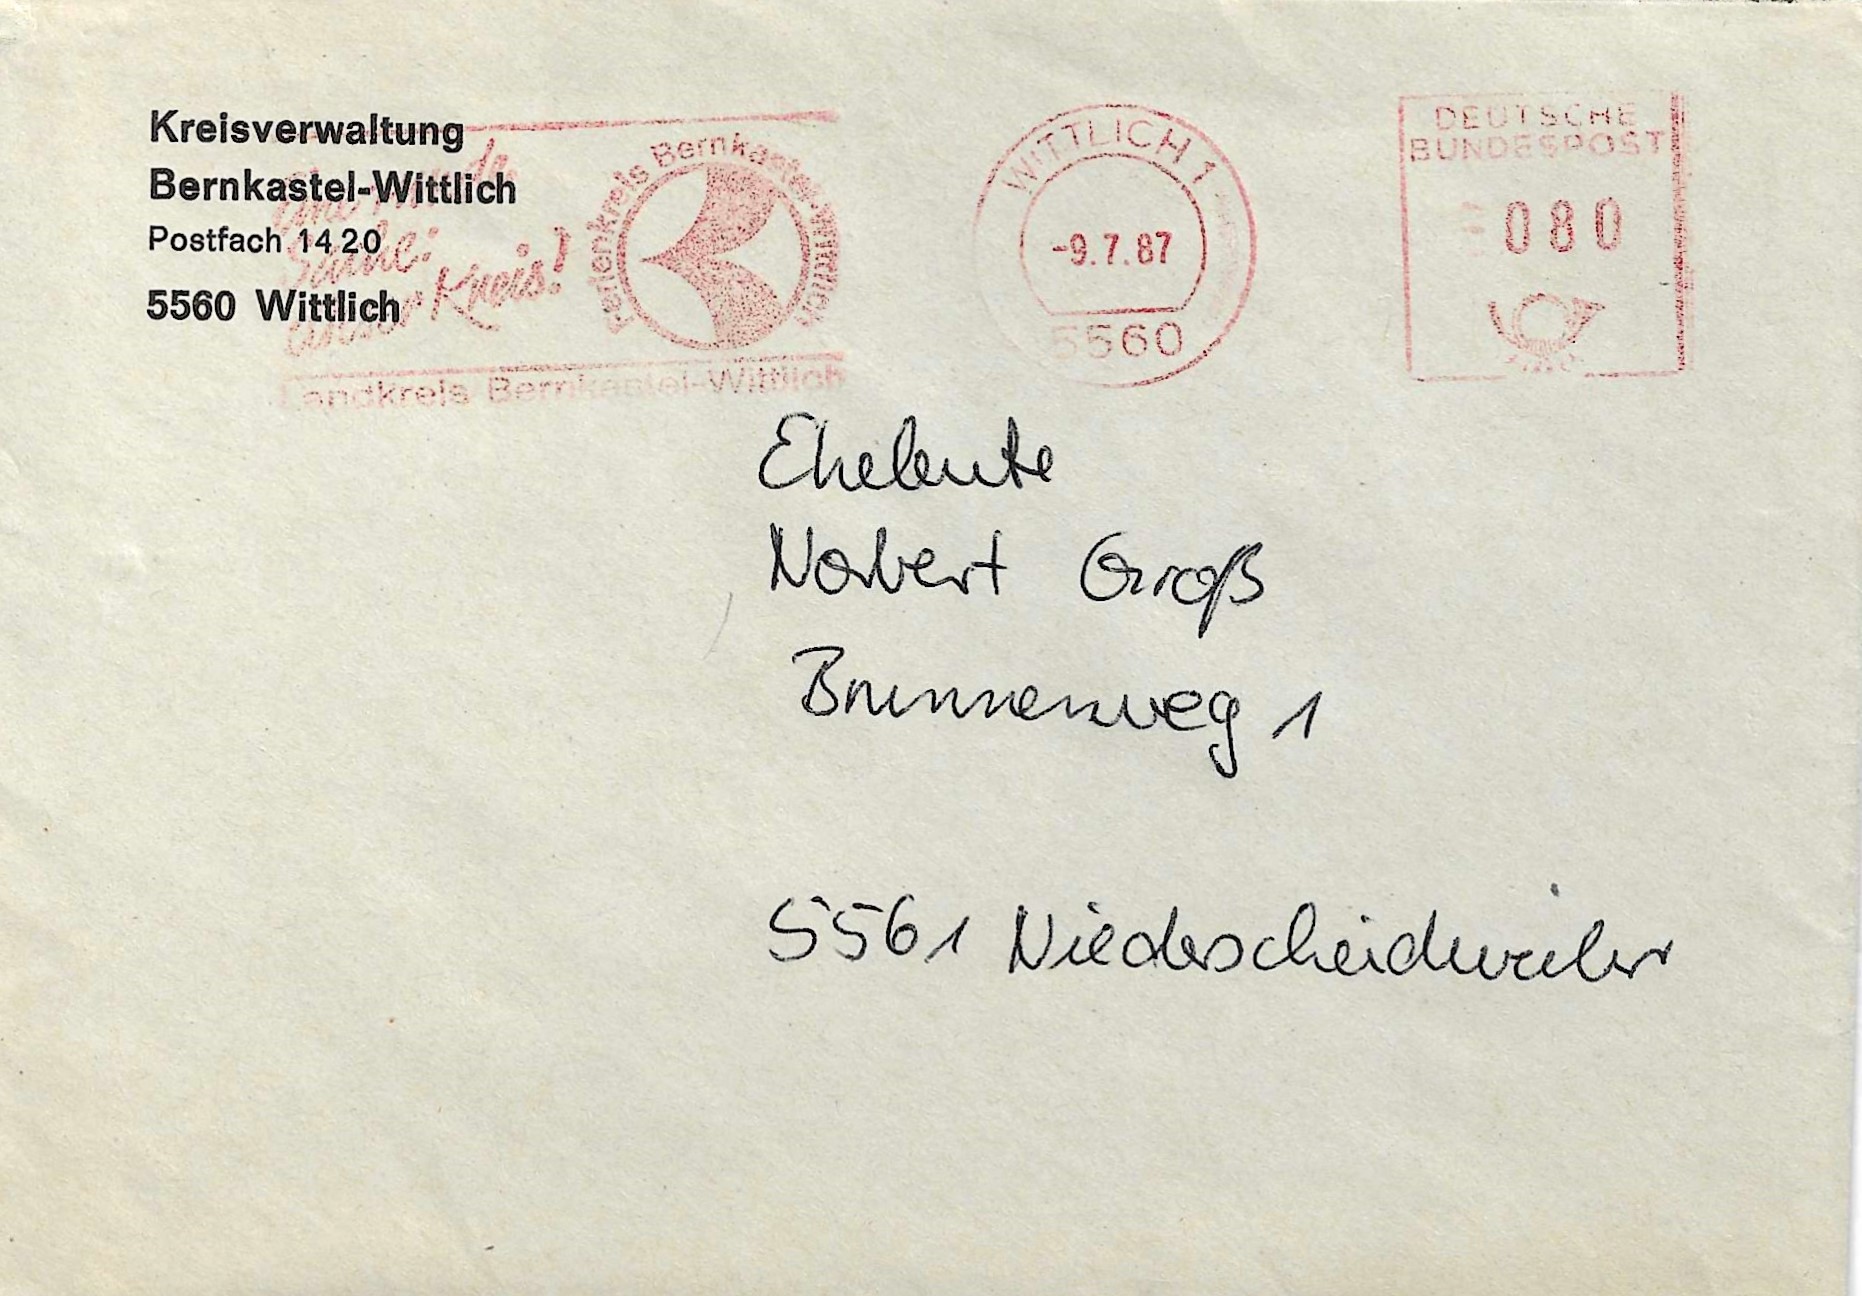 Kreisverwaltung
Bernkastel-Wittlich
Postfach 1420
5560 Wittlich
Eine runde
Sache:
unser Kreis!
Ferienkreis Bernkastel-Wittlich
Landkreis Bernkastel-Wittlich
WITTLICH 1
-9.7.87
5560
DEUTSCHE
BUNDESPOST
080
Eheleute
Norbert Groß
Brunnenweg 1
5561 Niederscheidweiler